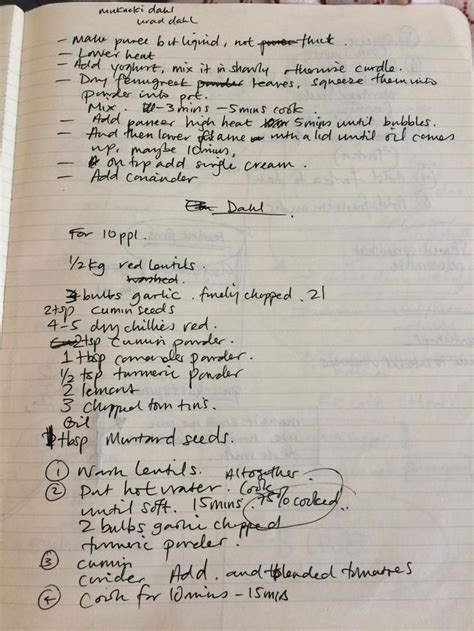 mukucki dahl
urad dahl
- Make puree but liquid, not puree thick.
- Lower heat
- Add yoghurt, mix it in slowly otherwise curdle.
- Dry fenugreek powder leaves, squeeze them into
powder into pot.
Mix. 3 mins - 5 mins cook.
- Add paneer high heat 5 mins until bubbles.
- And then lower flame with a lid until oil comes
up, maybe 10 mins,
- on top add single cream.
- Add coriander
Dahl.
For 10 ppl.
1/2 kg red lentils.
washed.
bulbs garlic. finely chopped. 2
2tsp cumin seeds
4-5 dry chillies red.
2tsp cumin powder.
1 tbsp coriander powder.
1/2 tsp turmeric powder
2 lemons
3 chopped tom tins.
Oil
1 tbsp Mustard seeds.
① Wash lentils. Altogether.
② Put hot water. Cook
until soft. 15 mins. 75% cooked.
2 bulbs garlic chopped
turmeric powder.
③ cumin
Add. and blended tomatoes
④ Cook for 10 mins - 15 mins